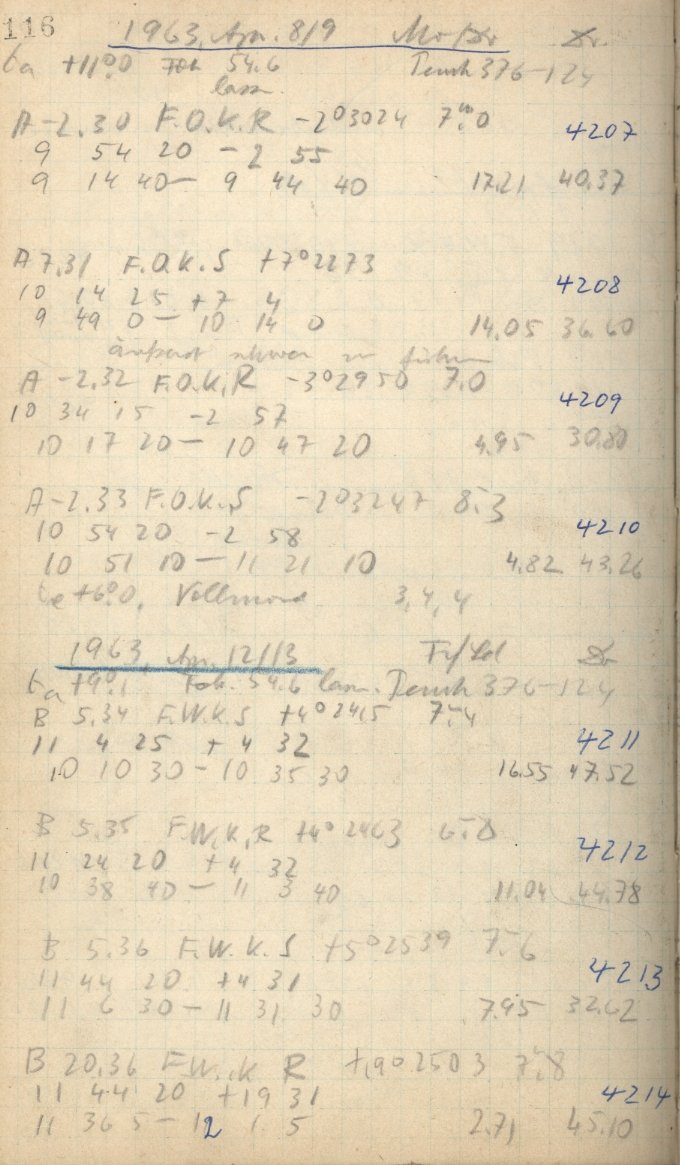 116 1963, Apr. 8/9 Mo/Dr Dr.
ta +11°.0 Fok 54.6 Temh 376-124
lasn.
A -2.30 F.O.K.R -2°3024 7ᵐ.0 4207
9 54 20 - 2 55
9 14 40 - 9 44 40 17.21 40.37
A 7.31 F.O.K.S +7°2273 4208
10 14 25 +7 4
9 49 0 - 10 14 0 14.05 36.60
äußerst schwer zu führen
A -2.32 F.O.K.R -3°2950 7.0 4209
10 34 15 -2 57
10 17 20 - 10 47 20 4.95 30.80
A -2.33 F.O.K.S -2°3247 8.3 4210
10 54 20 -2 58
10 51 10 - 11 21 10 4.82 43.26
te +6°.0, Vollmond 3, 4, 4
1963, Apr. 12/13 Dr
ta +9°.1 Fok. 54.6 lasn. Temh 376-124
B 5.34 F.W.K.S +4°2415 7.4 4211
11 4 25 + 4 32
10 10 30 - 10 35 30 16.55 47.52
B 5.35 F.W.K.R +4°2463 6.8 4212
11 24 20 +4 32
10 38 40 - 11 3 40 11.04 44.78
B 5.36 F.W.K.S +5°2539 7.6 4213
11 44 20 +4 31
11 6 30 - 11 31 30 7.95 32.62
B 20.36 F.W.K R +19°2503 7.8 4214
11 44 20 +19 31
11 36 5 - 12 1 5 2.71 45.10